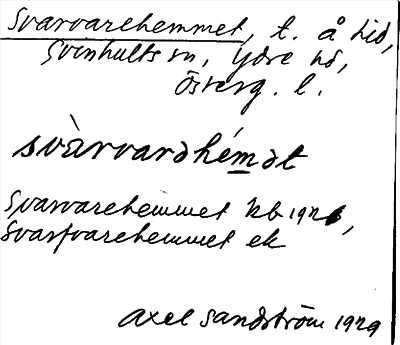 Svarvarehemmet, t. å Lid,
Svinhults sn, Ydre hd,
Österg. l.
svàrvarəhém̲ət
Svarvarehemmet kb 1921,
Svarfvarehemmet ek
Axel Sandström 1929